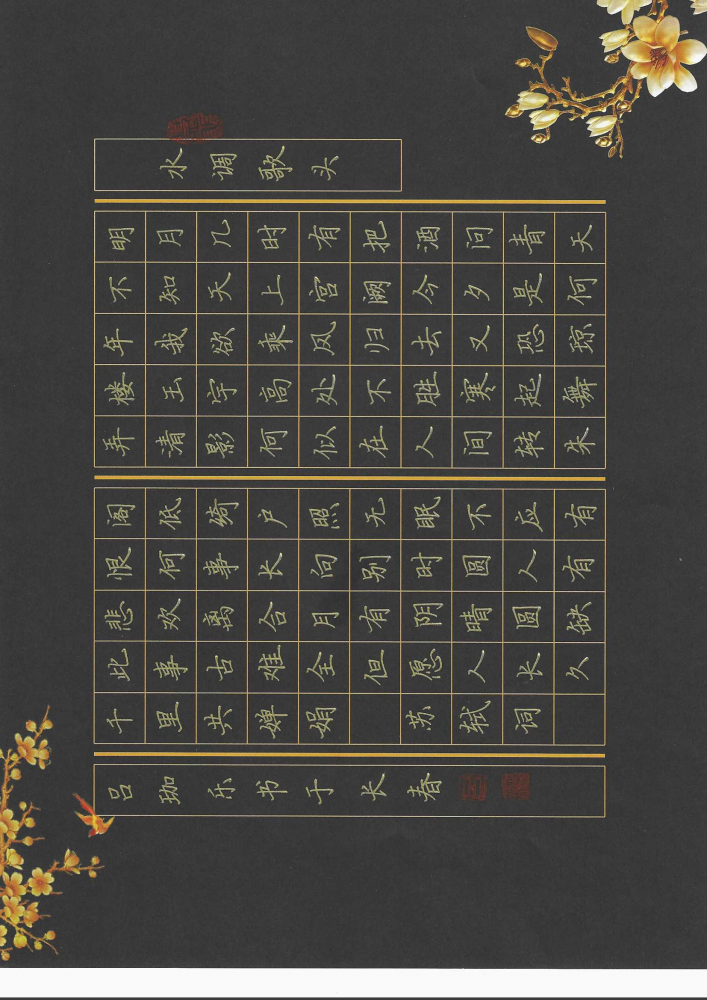 水调歌头
明月几时有把酒问青天
不知天上宫阙今夕是何
年我欲乘风归去又恐琼
楼玉宇高处不胜寒起舞
弄清影何似在人间转朱
阁低绮户照无眠不应有
恨何事长向别时圆人有
悲欢离合月有阴晴圆缺
此事古难全但愿人长久
千里共婵娟 苏轼词
吕珈乐书于长春